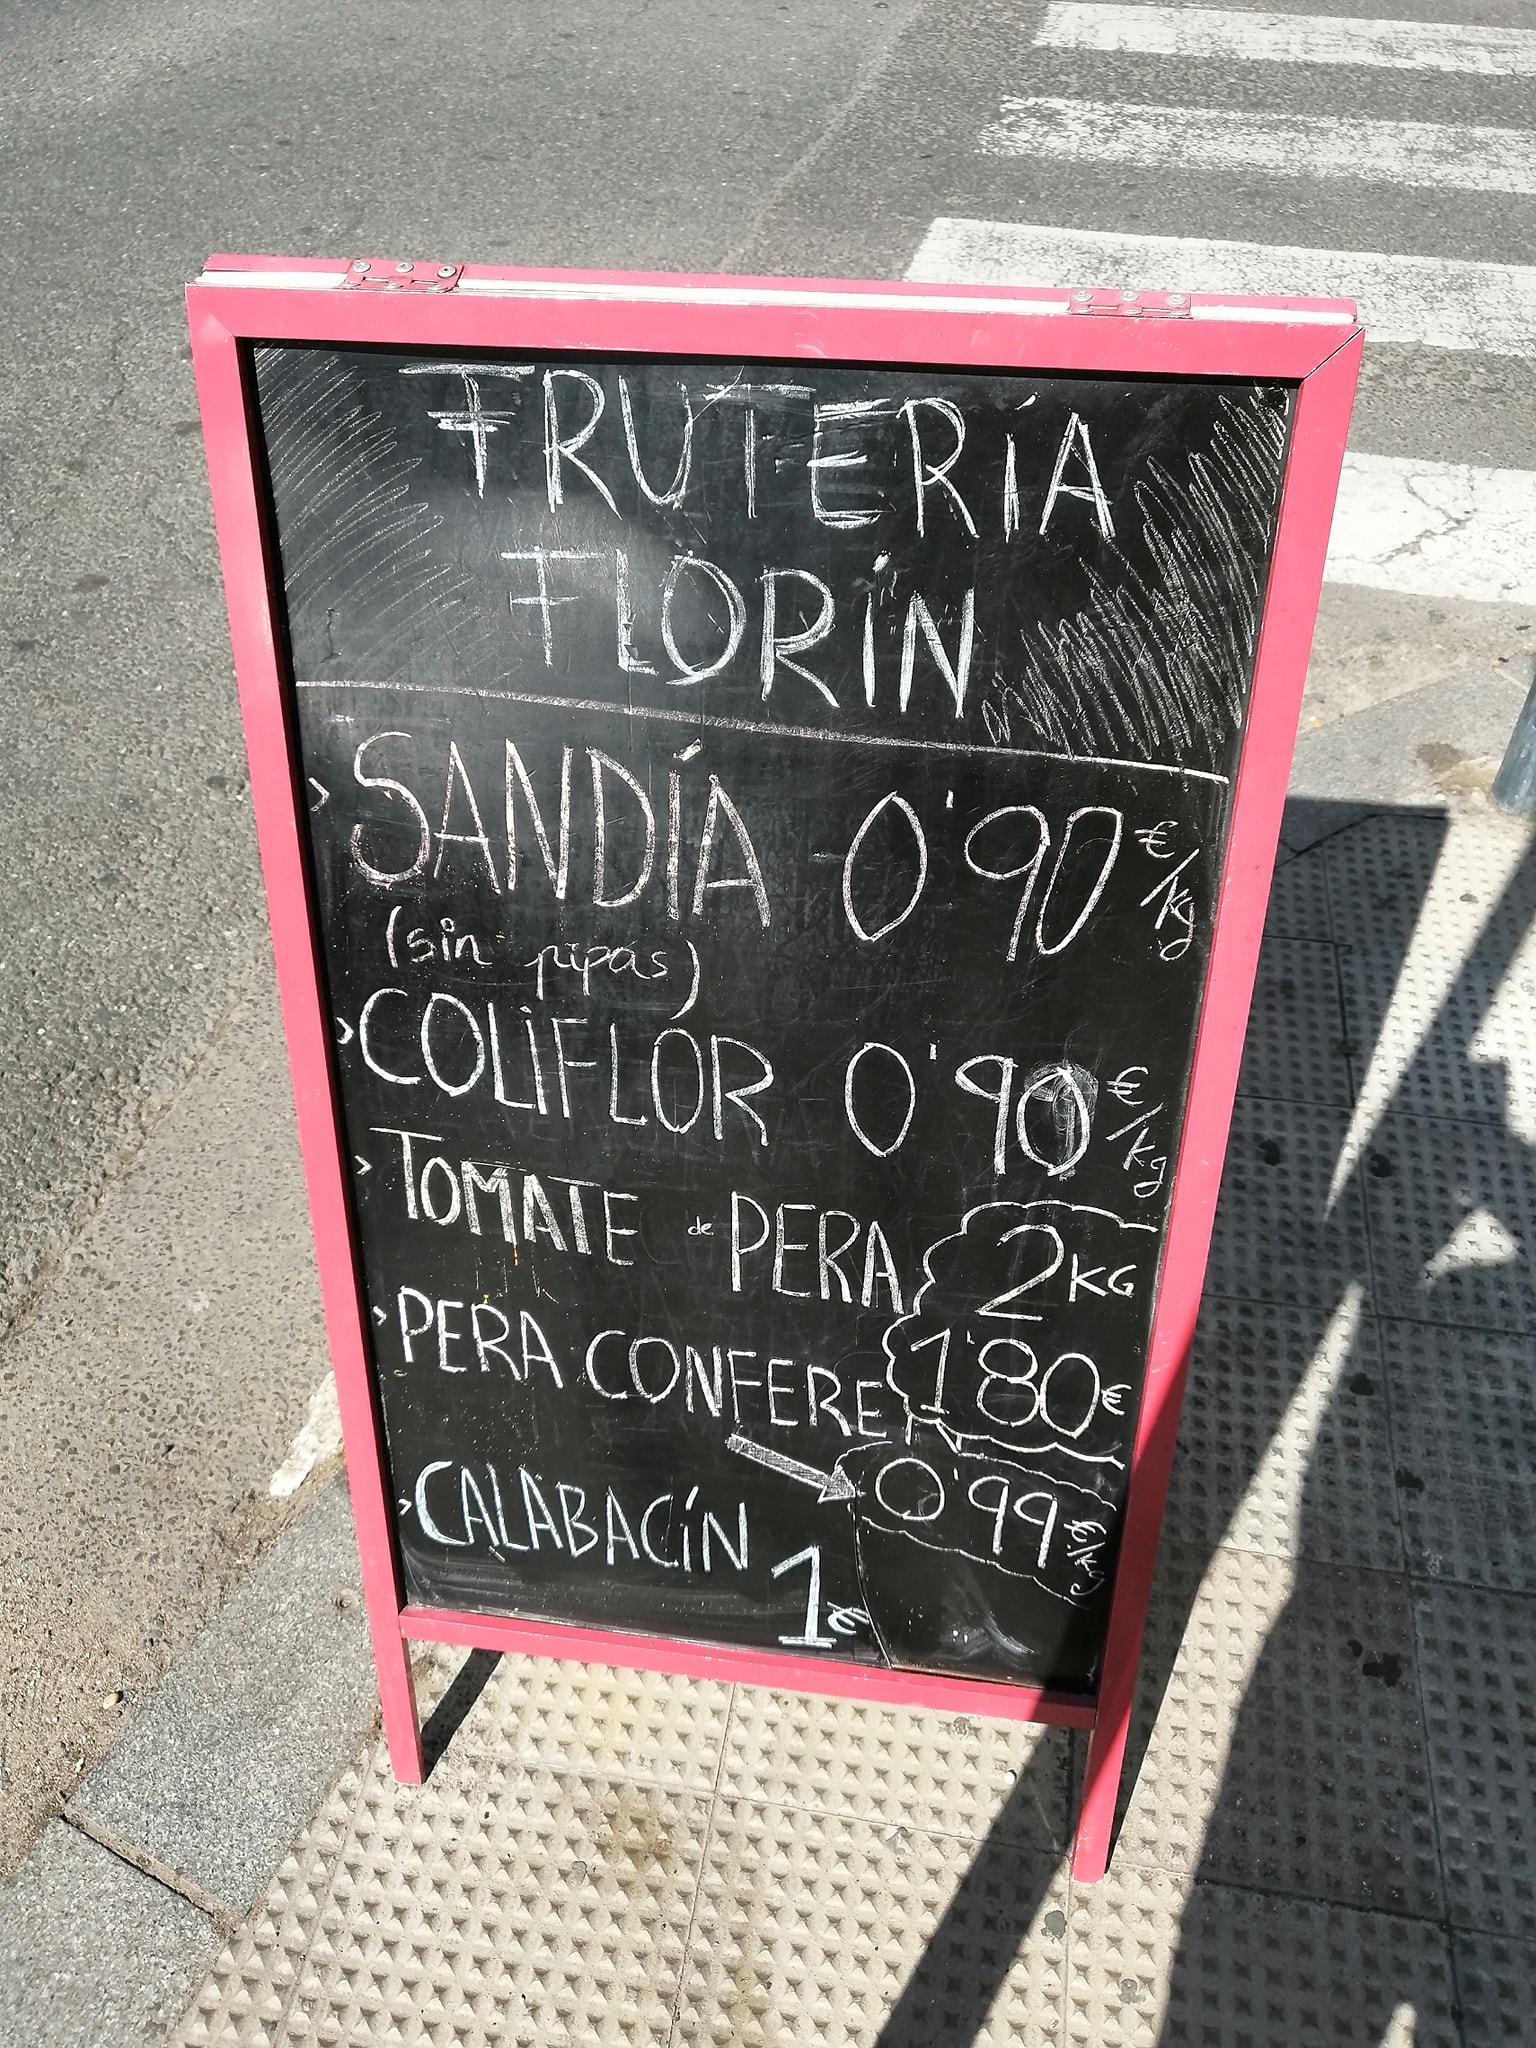 FRUTERÍA
FLORÍN
> SANDÍA 0'90 €/kg
(sin pipas)
> COLIFLOR 0'90 €/kg
> TOMATE de PERA 2KG
1'80€
> PERA CONFEREN
0'99 €/kg
> CALABACÍN
1€